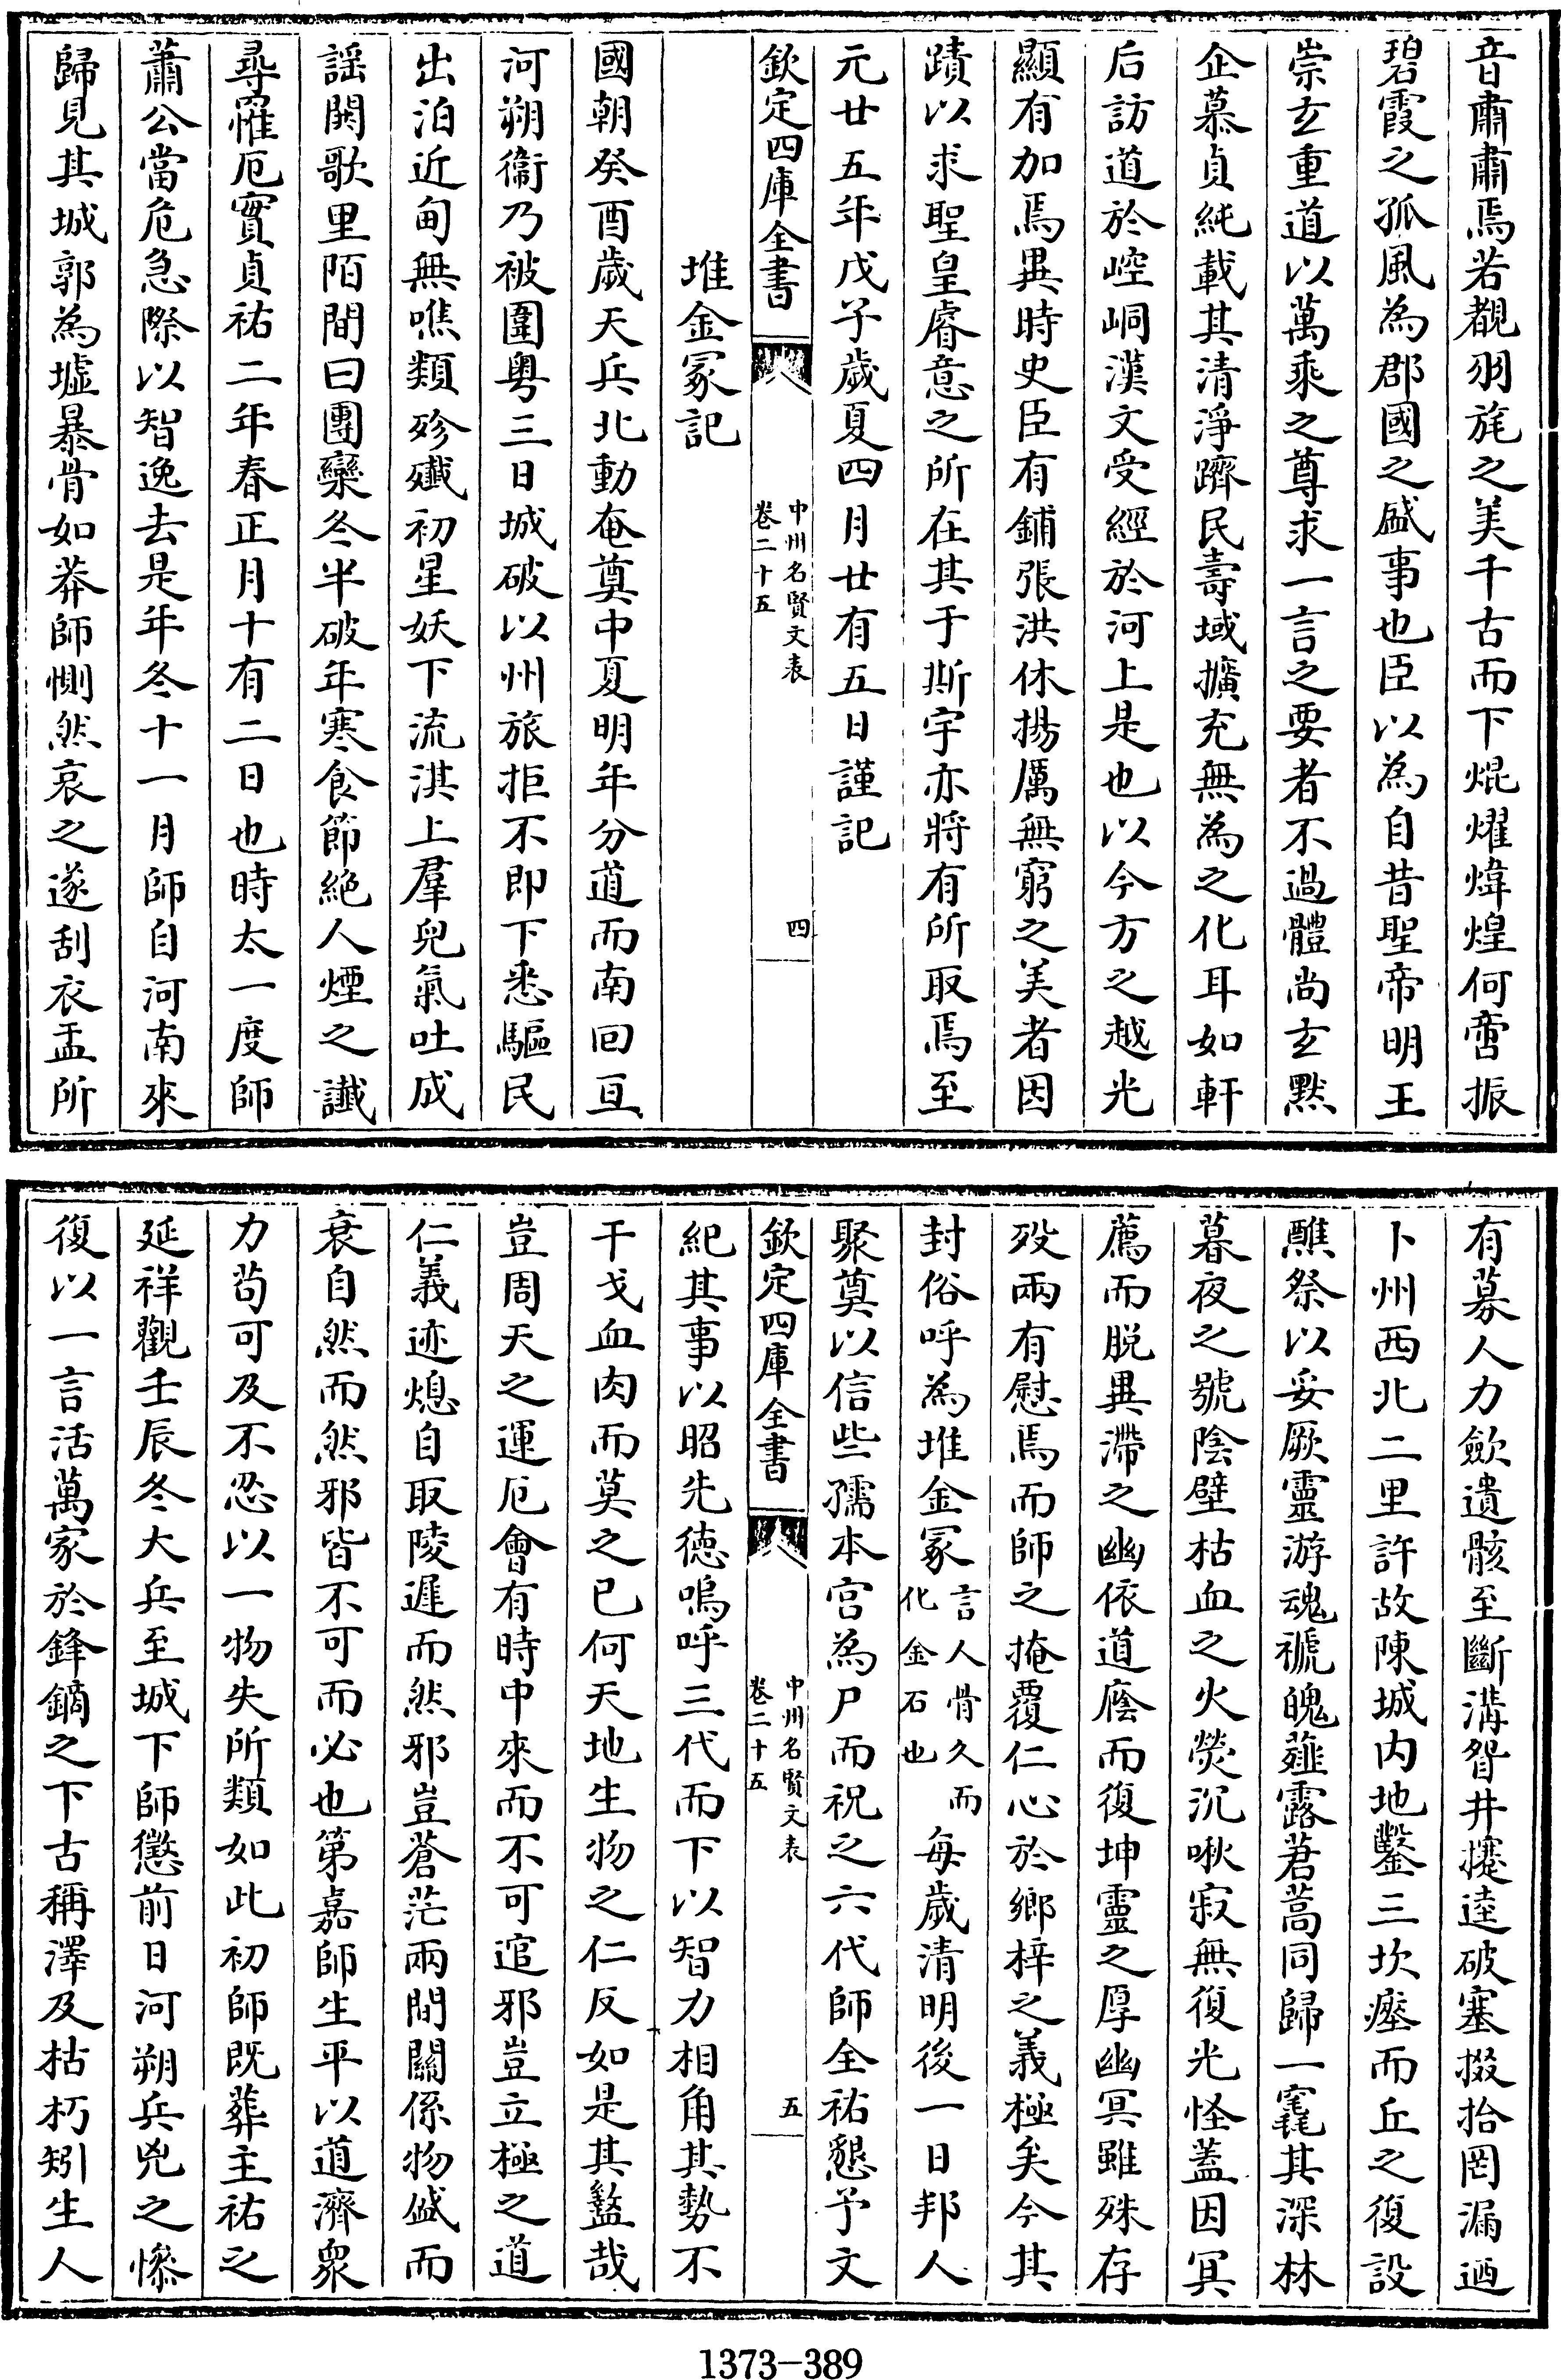 音肅肅焉若覩羽旄之美千古而下焜燿煒煌何啻振
碧霞之孤風為郡國之盛事也臣以為自昔聖帝明王
崇玄重道以萬乘之尊求一言之要者不過體尚玄黙
企慕貞純載其清淨躋民壽域擴充無為之化耳如軒
后訪道於崆峒漢文受經於河上是也以今方之越光
顯有加焉異時史臣有鋪張洪休揚厲無窮之美者因
蹟以求聖皇睿意之所在其于斯宇亦將有所取焉至
元廿五年戊子歲夏四月廿有五日謹記
欽定四庫全書
中州名賢文表
卷二十五
四
堆金冢記
國朝癸酉歲天兵北動奄奠中夏明年分道而南回亘
河朔衞乃被圍粤三日城破以州旅拒不即下悉驅民
出泊近甸無噍類殄殲初星妖下流淇上羣兇氣吐成
謡闕歌里陌間曰團欒冬半破年寒食節絶人煙之讖
尋罹厄實貞祐二年春正月十有二日也時太一度師
蕭公當危急際以智逸去是年冬十一月師自河南來
歸見其城郭為墟暴骨如莽師惻然哀之遂刮衣盂所
有募人力歛遺骸至斷溝眢井㩴逵破塞掇拾罔漏迺
卜州西北二里許故陳城内地鑿三坎瘞而丘之復設
醮祭以妥厥靈游魂褫魄薤露焄蒿同歸一竁其深林
暮夜之號陰壁枯血之火熒沉啾寂無復光怪葢因冥
薦而脱異滯之幽依道廕而復坤靈之厚幽冥雖殊存
殁兩有慰焉而師之掩覆仁心於鄉梓之義極矣今其
封俗呼為堆金冢言人骨久而化金石也每歲清明後一日邦人
聚奠以信些孺本宫為尸而祝之六代師全祐懇予文
欽定四庫全書
中州名賢文表
卷二十五
五
紀其事以昭先徳嗚呼三代而下以智力相角其勢不
干戈血肉而莫之已何天地生物之仁反如是其盭哉
豈周天之運厄會有時中來而不可逭邪豈立極之道
仁義迹熄自取陵遲而然邪豈蒼茫兩間關係物盛而
衰自然而然邪皆不可而必也第嘉師生平以道濟衆
力茍可及不忍以一物失所類如此初師既葬主祐之
延祥觀壬辰冬大兵至城下師懲前日河朔兵兇之慘
復以一言活萬家於鋒鏑之下古稱澤及枯朽矧生人
1373-389